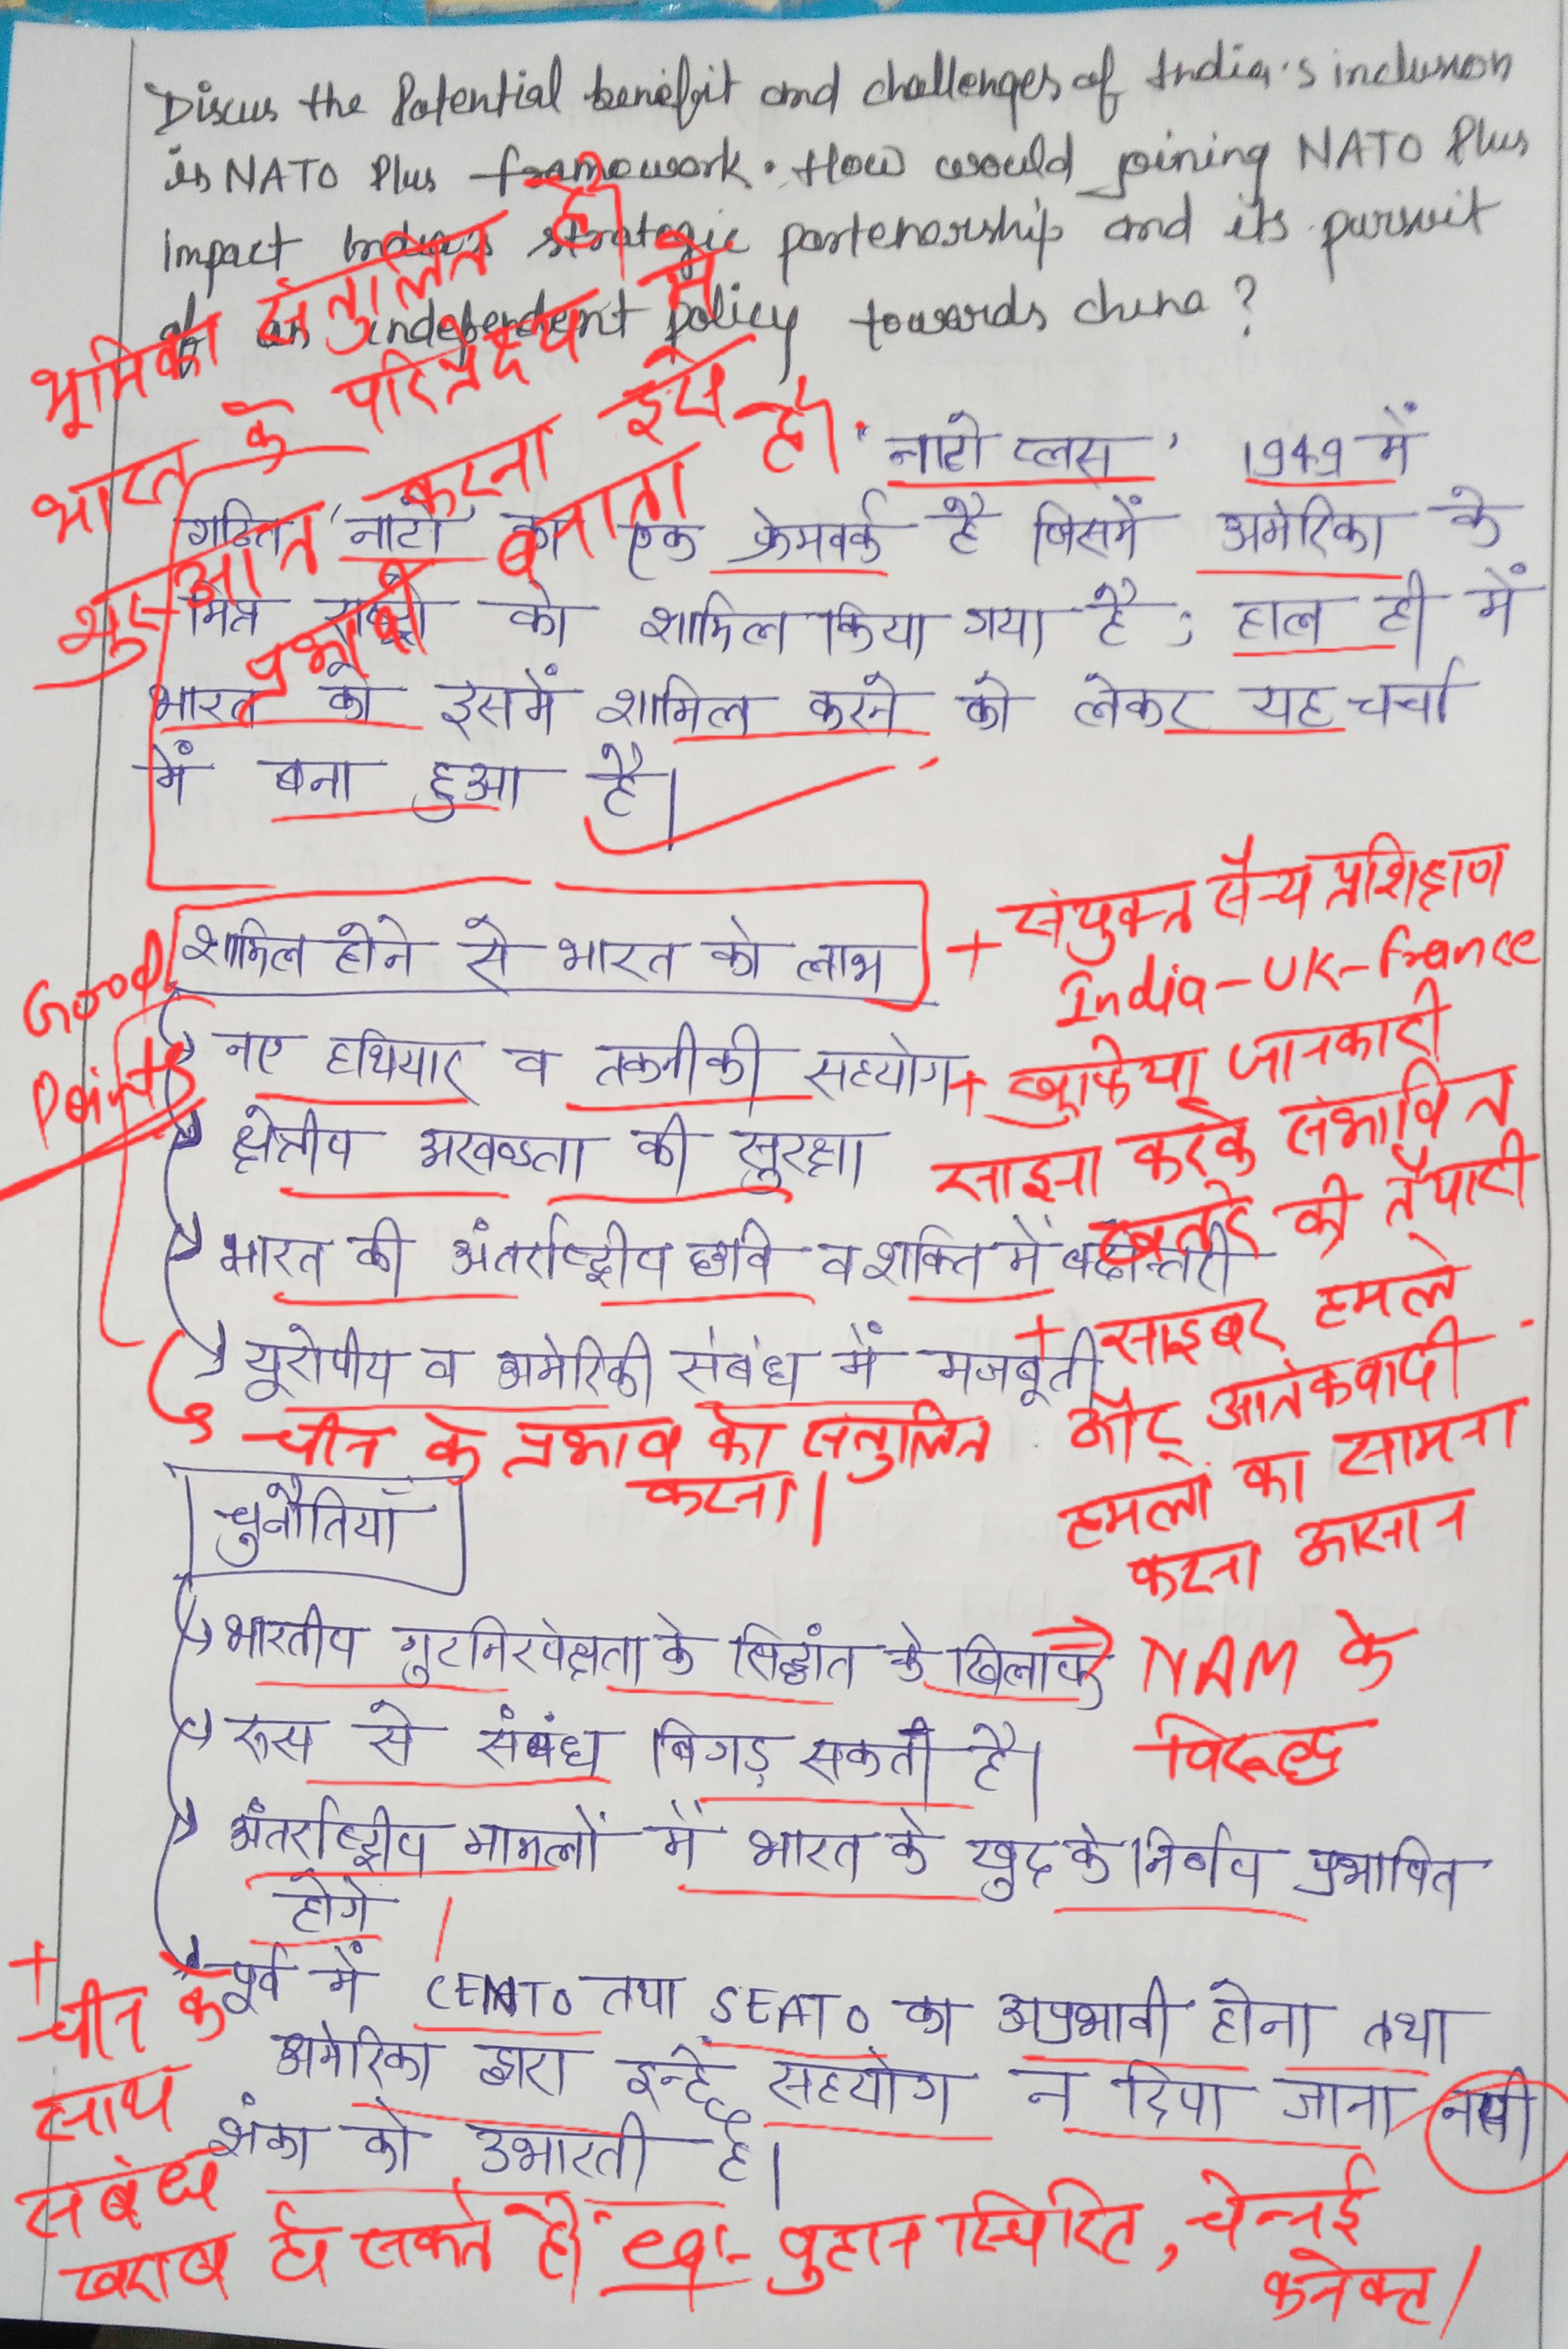 Discus the Potential benefit and challenges of India's inclusion
is NATO Plus framework. How would joining NATO Plus
impact India's strategic partenarship and its pursuit
of an independent policy towards china?
भूमिका संतुलित है।
भारत के परिप्रेक्ष्य में
शुरुआत करना इसे
प्रभावी बनाता है।
'नाटो प्लस' 1949 में
गठित 'नाटो' का एक फ्रेमवर्क है जिसमें अमेरिका के
मित्र राष्ट्रों को शामिल किया गया है; हाल ही में
भारत को इसमें शामिल करने को लेकर यह चर्चा
में बना हुआ है।
Good
Points
शामिल होने से भारत को लाभ
+ संयुक्त सैन्य प्रशिक्षण
India-UK-france
नए हथियार व तकनीकी सहयोग
+ खुफिया जानकारी
साझा करके संभावित
खतरे की तैयारी
क्षेत्रीय अखण्डता की सुरक्षा
भारत की अंतर्राष्ट्रीय छवि व शक्ति में बढोन्तरी
यूरोपीय व अमेरिकी संबंध में मजबूती
+ साइबर हमले
और आतंकवादी
हमलों का सामना
करना आसान
चीन के प्रभाव को संतुलित
करना।
चुनौतियाँ
भारतीय गुटनिरपेक्षता के सिद्धांत के खिलाफ
NAM के
विरुद्ध
रूस से संबंध बिगड़ सकती है।
अंतर्राष्ट्रीय मामलों में भारत के खुद के निर्णय प्रभावित
होगे
पूर्व में CENTO तथा SEATO का अप्रभावी होना तथा
अमेरिका द्वारा इन्हें सहयोग न दिया जाना
शंका को उभारती है।
+ चीन के
साथ
संबंध
खराब हो सकते है। eg:- वुहान स्पिरिट, चेन्नई
कनेक्ट।